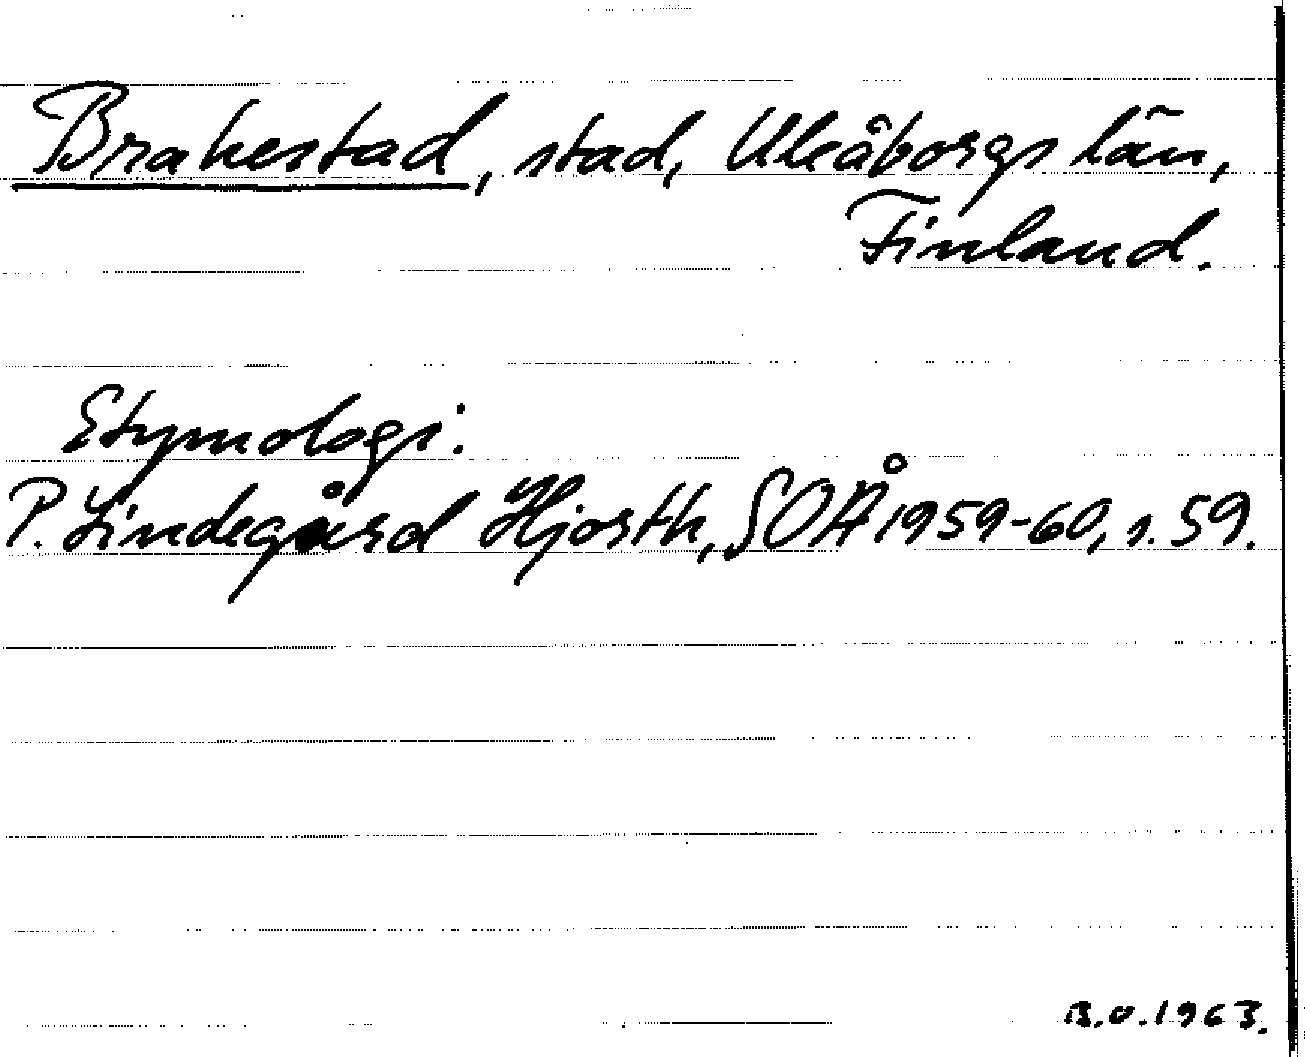 Brahestad, stad, Uleåborgs län,
Finland.
Etymologi:
P. Lindegård Hjorth, SOÅ 1959-60, s. 59.
B.O. 1963.